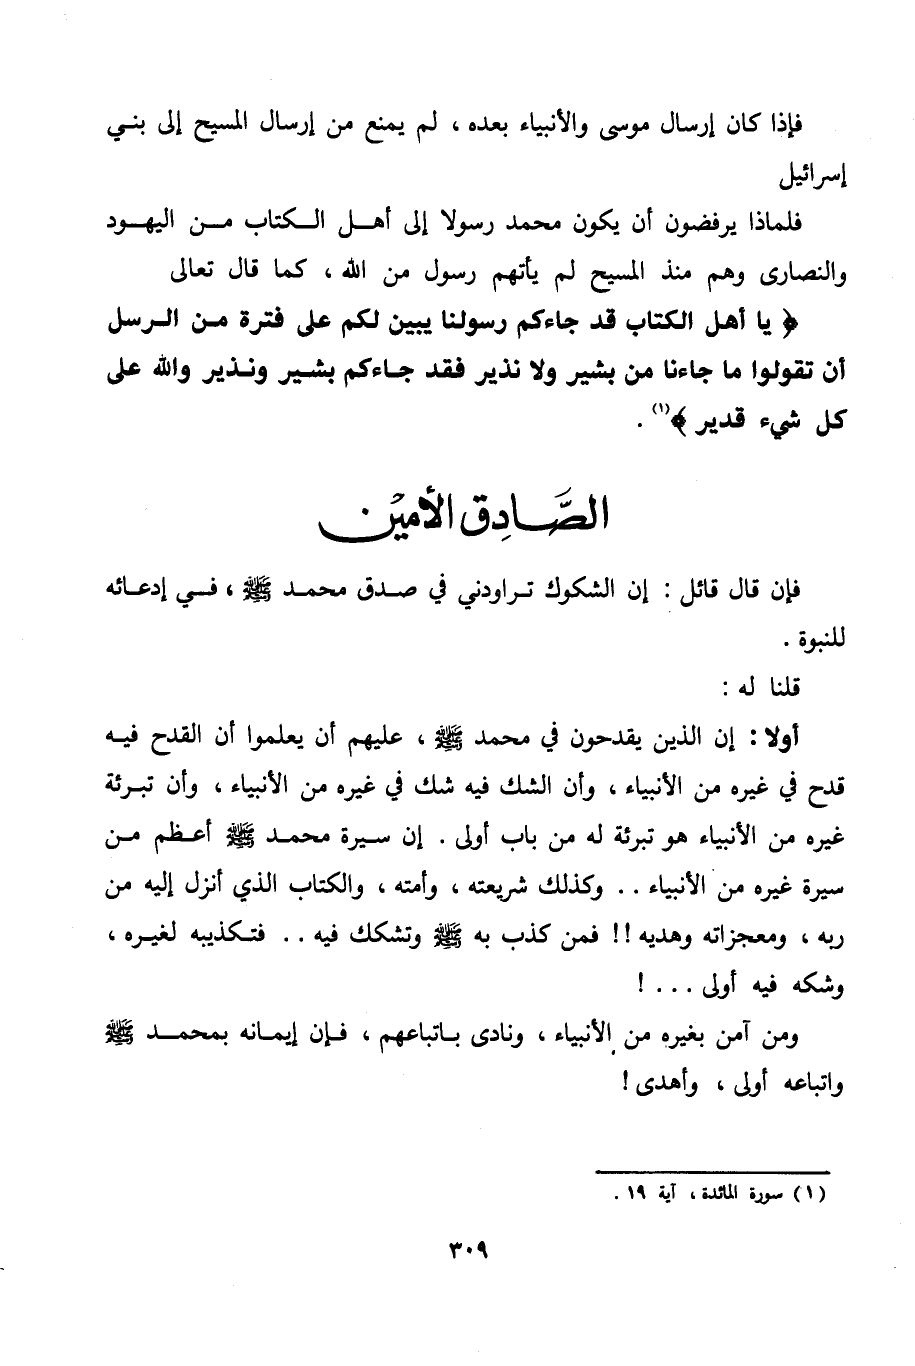 فإذا كان إرسال موسى والأنبياء بعده ، لم يمنع من إرسال المسيح إلى بنـي
إسرائيل
فلماذا يرفضون أن يكون محمد رسولا إلى أهـل الـكتاب مـن اليهـود
والنصارى وهم منذ المسيح لم يأتهم رسول من الله ، كما قال تعالى
﴿ يا أهل الكتاب قد جاءكم رسولنا يبين لكم على فترة من الرسل
أن تقولوا ما جاءنا من بشير ولا نذير فقد جاءكم بشير ونذير والله على
كل شيء قدير ﴾(١) .
الصَّادِق الأمين
فإن قال قائل : إن الشكوك تراودني في صدق محمد ﷺ ، فـي إدعائه
للنبوة .
قلنا له :
أولا : إن الذين يقدحون في محمد ﷺ ، عليهم أن يعلموا أن القدح فيه
قدح في غيره من الأنبياء ، وأن الشك فيه شك في غيره من الأنبياء ، وأن تبرئة
غيره من الأنبياء هو تبرئة له من باب أولى . إن سيرة محمد ﷺ أعظم من
سيرة غيره من الأنبياء .. وكذلك شريعته ، وأمته ، والكتاب الذي أنزل إليه من
ربه ، ومعجزاته وهديه !! فمن كذب به ﷺ وتشكك فيه .. فتكذيبه لغيره ،
وشكه فيه أولى ... !
ومن آمن بغيره من الأنبياء ، ونادى باتباعهم ، فإن إيمانه بمحمد ﷺ
واتباعه أولى ، وأهدى !
(١) سورة المائدة ، آية ١٩ .
٣٠٩